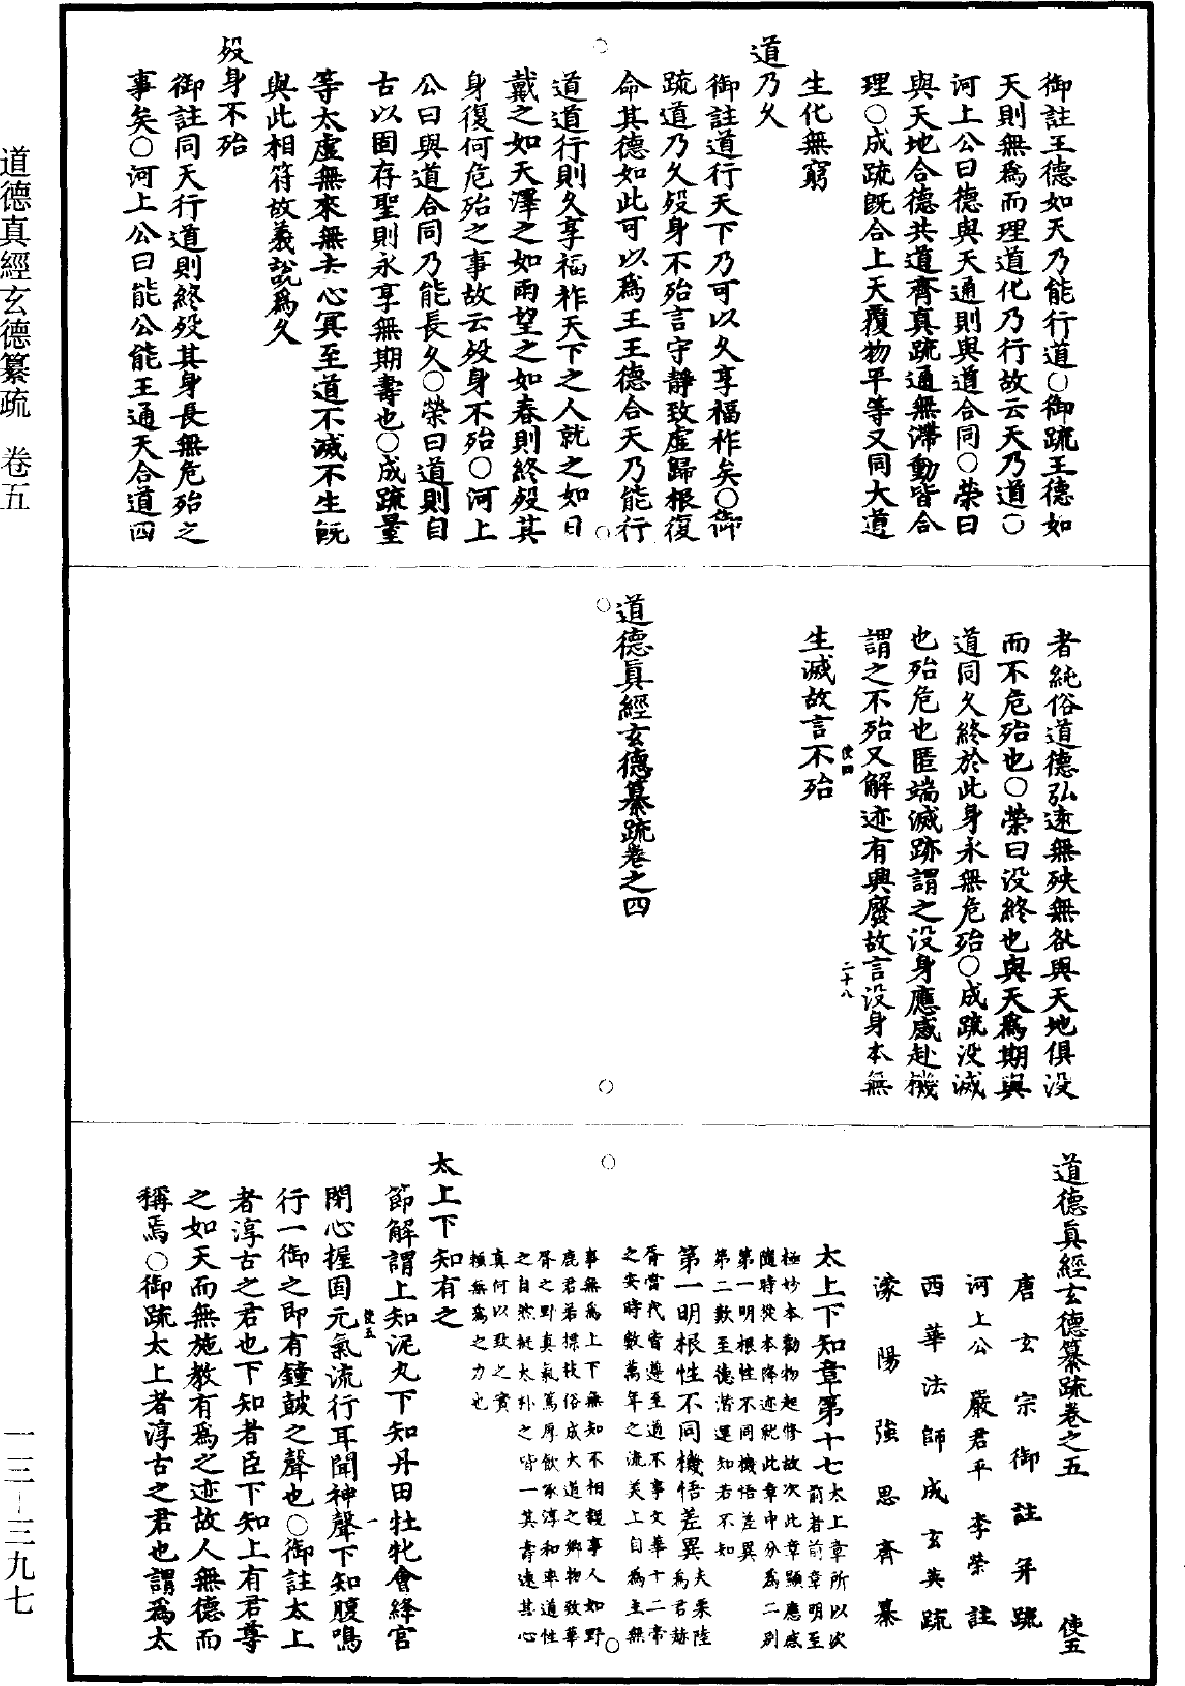 御註王德如天乃能行道〇御疏王德如
天則無爲而理道化乃行故云天乃道〇
河上公曰德與天通則與道合同〇榮曰
與天地合德共道齊真疏通無滯動皆合
理〇成疏既合上天覆物平等又同大道
生化無窮
道乃久
御註道行天下乃可以久享福祚矣〇御
疏道乃久歿身不殆言守靜致虛歸根復
命其德如此可以爲王王德合天乃能行
道道行則久享福祚天下之人就之如日
戴之如天澤之如雨望之如春則終歿其
身復何危殆之事故云歿身不殆〇河上
公曰與道合同乃能長久〇榮曰道則自
古以固存聖則永享無期壽也〇成疏量
等太虛無來無去心冥至道不滅不生既
與此相符故義說爲久
歿身不殆
御註同天行道則終歿其身長無危殆之
事矣〇河上公曰能公能王通天合道四
者純俗道德弘遠無殃無咎與天地俱没
而不危殆也〇榮曰没終也與天爲期與
道同久終於此身永無危殆〇成疏没滅
也殆危也匿端滅跡謂之没身應感赴機
謂之不殆又解迹有興廢故言没身本無
使四
二十八
生滅故言不殆
道德真經玄德纂疏卷之四
道德真經玄德纂疏卷之五
使五
唐玄宗御註并疏
河上公 嚴君平 李榮註
西華法師成玄英疏
濛陽強思齊纂
太上下知章第十七太上章所以次
前者前章明至
極妙本勸物起修故次此章顯應感
隨時從本降迹就此章中分爲二别
第一明根性不同機悟差異
第二歎至德潛運知若不知
第一明根性不同機悟差異夫粟陸
爲君赫
胥當代皆遵至道不事文華十二帝
之安時數萬年之流美上自爲主無
事無爲上下無知不相親事人如野
鹿君若標枝俗成大道之鄉物致華
胥之野真氣篤厚飲啄淳和率道性
之自然誕太朴之皆一其壽遠其心
真何以致之實
賴無爲之力也
太上下知有之
節解謂上知泥丸下知丹田牡牝會絳宮
閉心握固元氣流行耳聞神聲下知腹鳴
使五
一
行一御之即有鐘皷之聲也〇御註太上
者淳古之君也下知者臣下知上有君尊
之如天而無施教有爲之迹故人無德而
稱焉〇御疏太上者淳古之君也謂爲太
道德真經玄德纂疏 卷五
一三—三九七